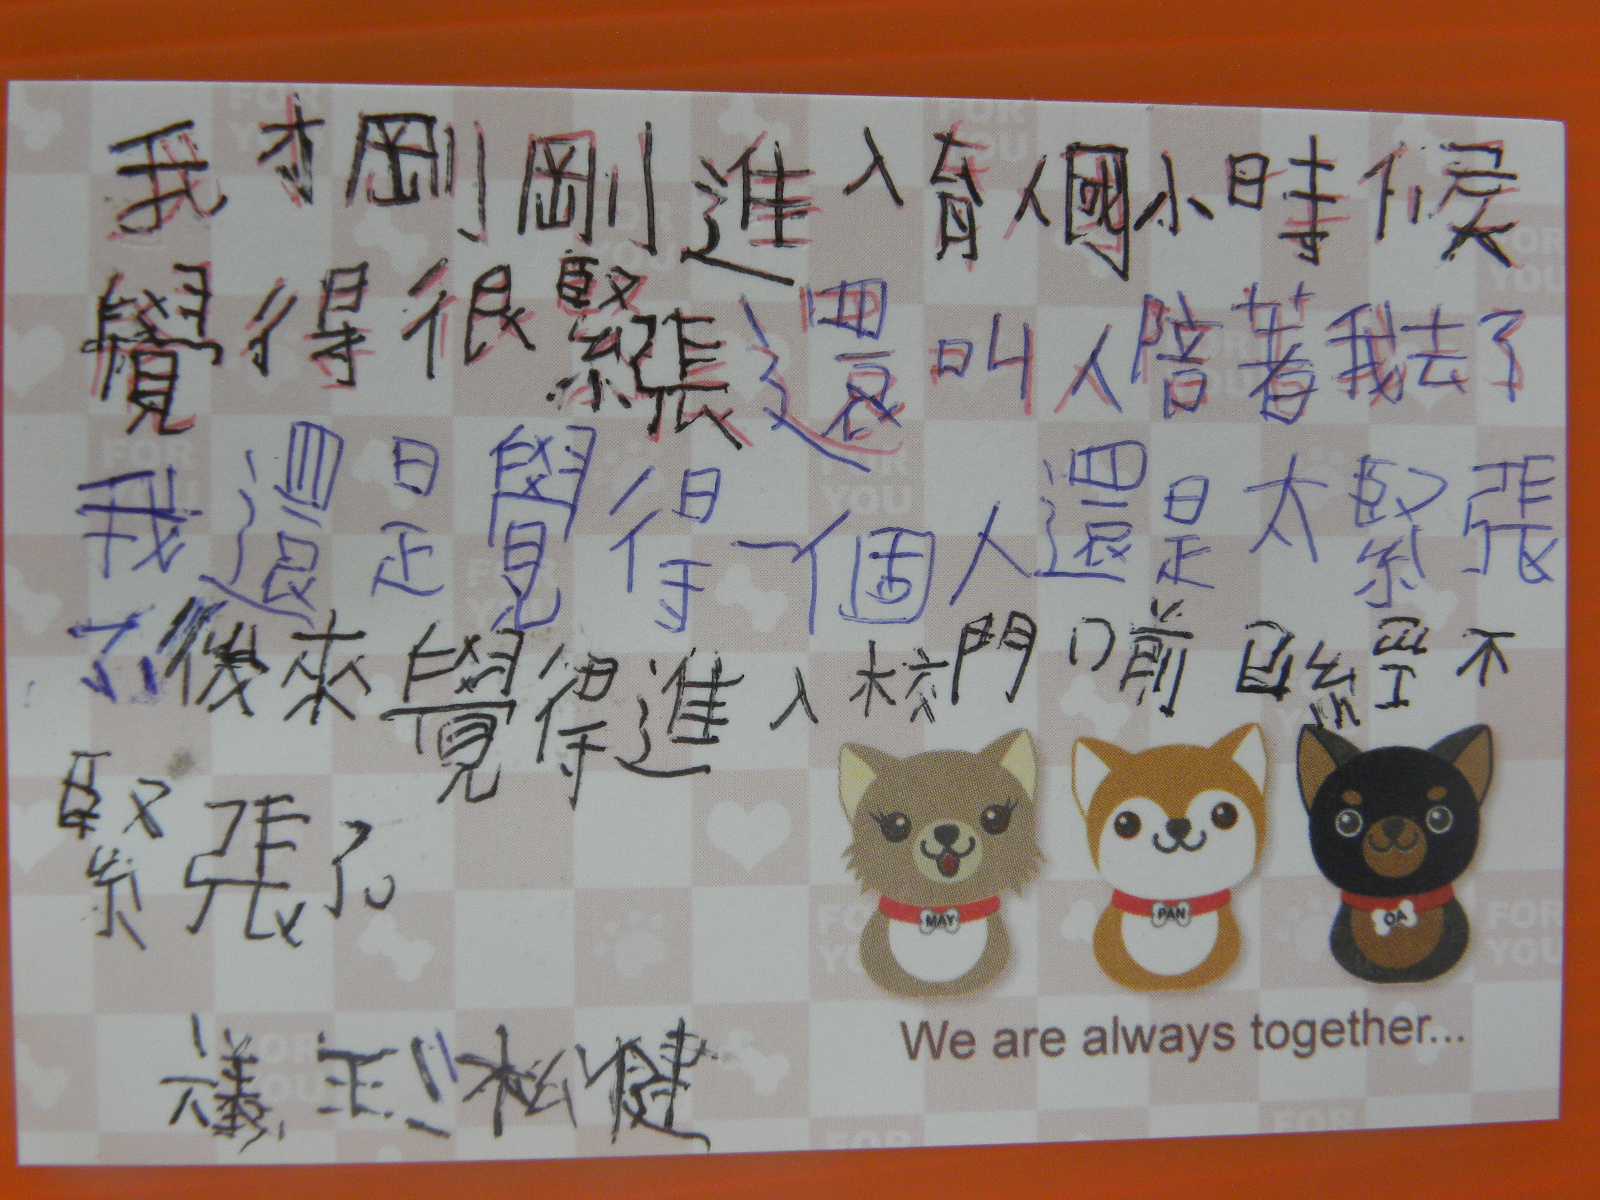 我才剛剛進入育人國小時候
覺得很緊張還叫人陪著我去了
我還是覺得一個人還是太緊張
了後來覺得進入校門口前已經不
緊張了
松健
MAY
PAN
OA
We are always together...
FOR YOU